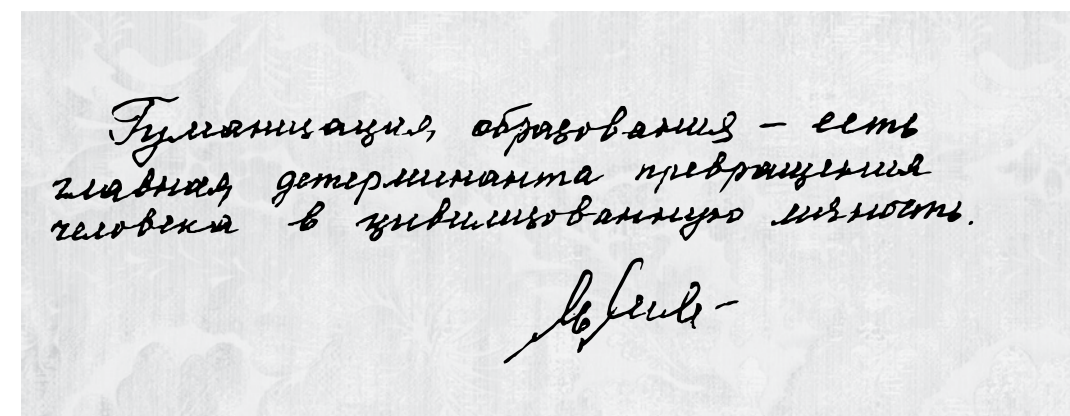 Гуманизация образования – есть
главная детерминанта превращения
человека в цивилизованную личность.